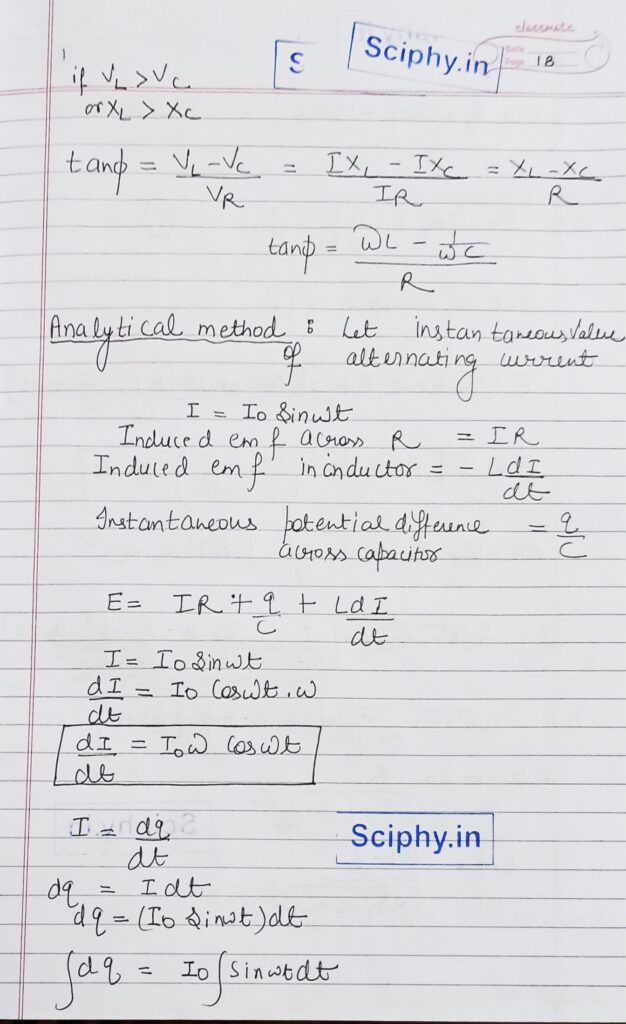 classmate
Date
Page 18
S
Sciphy.in
if VL > VC
or XL > XC
tanϕ = (VL - VC)/VR = (IXL - IXC)/IR = (XL - XC)/R
tanϕ = (ωL - 1/ωC)/R
Analytical method : Let instantaneous Value
of alternating current
I = I0 Sinωt
Induced emf across R = IR
Induced emf in inductor = - L dI/dt
Instantaneous potential difference = q/C
across capacitor
E = IR + q/C + L dI/dt
I = I0 Sinωt
dI/dt = I0 Cosωt . ω
dI/dt = I0 ω Cosωt
I = dq/dt
Sciphy.in
dq = I dt
dq = (I0 Sinωt) dt
∫dq = I0 ∫Sinωt dt